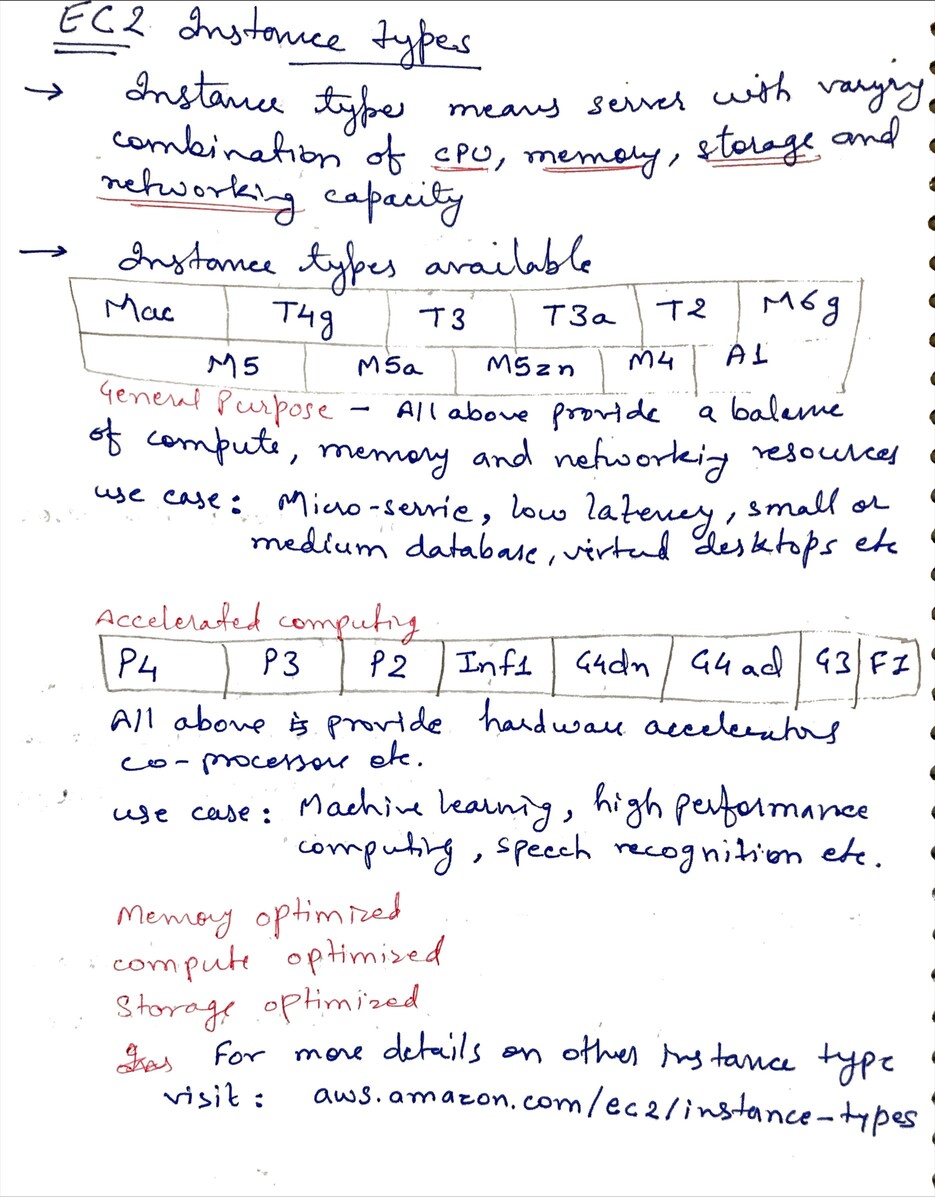 EC2 Instance types
→ Instance types means server with varying
combination of CPU, memory, storage and
networking capacity
→ Instance types available
Mac T4g T3 T3a T2 M6g
M5 M5a M5zn M4 A1
General Purpose - All above provide a balance
of compute, memory and networking resources
use case: Micro-servie, low latency, small or
medium database, virtual desktops etc
Accelerated computing
P4 P3 P2 Inf1 G4dn G4ad G3 F1
All above is provide hardware accelerators
co-processors etc.
use case: Machine learning, high performance
computing, speech recognition etc.
Memory optimized
compute optimized
Storage optimized
For more details on other instance type
visit: aws.amazon.com/ec2/instance-types